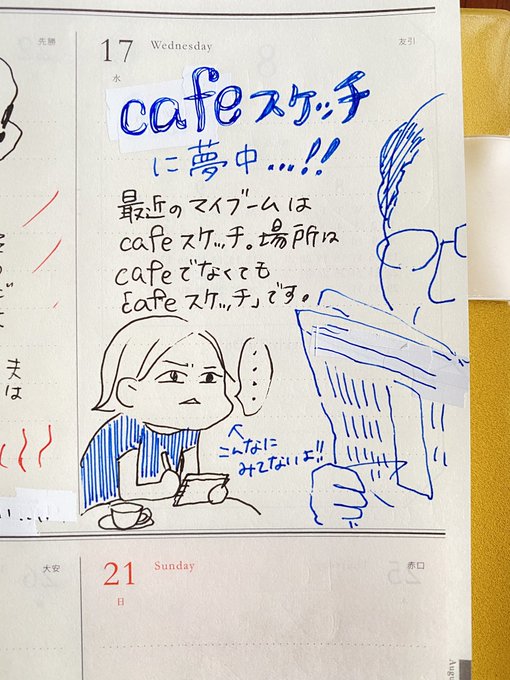 先勝
17 Wednesday
友引
水
cafeスケッチ
に夢中...!!
最近のマイブームは
cafeスケッチ。場所は
cafeでなくても
「cafeスケッチ」です。
・・・・
こんなに
みてないよ!!
夫
は
大安
21 Sunday
赤口
日